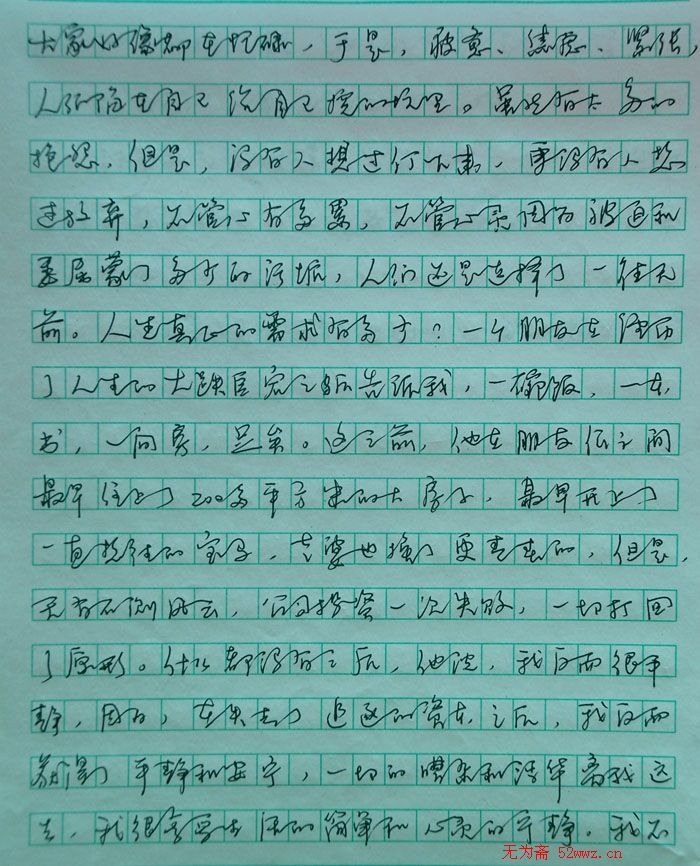 大家的缘都在忙碌，于是，疲惫、焦虑、紧张，
人们陷在自己给自己挖的坑里。虽然有太多的
抱怨，但是，没有人想过停下来，更没有人想
过放弃，不管心有多累，不管心灵因为被迫和
委屈蒙了多少的污垢，人们还是选择了一往无
前。人生真正的需求有多少？一个朋友在经历
了人生的大跌宕之后告诉我，一碗饭，一本
书，一间房，足矣。这之前，他在朋友们之间
最早住上了200多平方米的大房子，最早开上了
一直的宝马，老婆也换了更青春的，但是，
天有不测风云，公司投资一次失败，一切打回
了原形。什么都没有之后，他说，我反而很平
静，因为，在失去了追逐的资本之后，我反而
获得了平静和安宁，一切的喧嚣和浮华离我远
去，我很享受生活的简单和心灵的平静。我不
无为斋 52wwz.cn